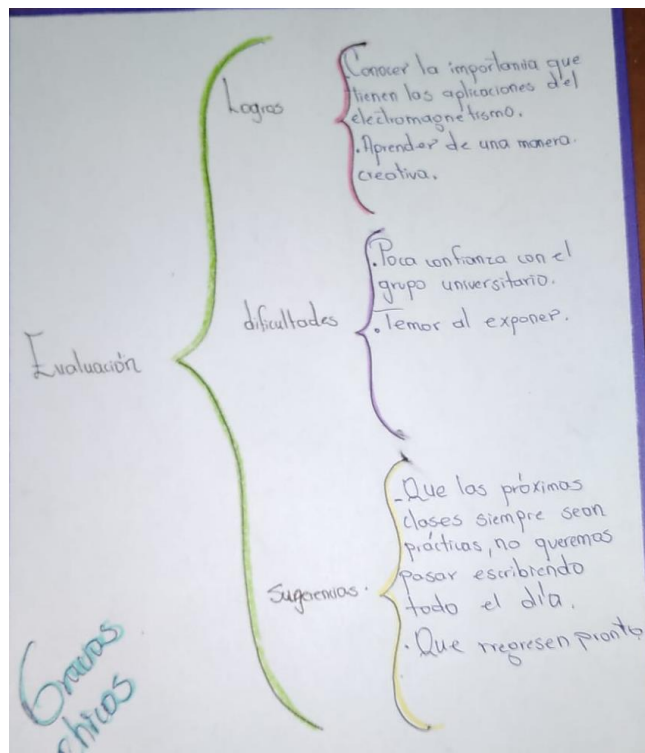 Evaluación
Logros
Conocer la importancia que
tienen las aplicaciones del
electromagnetismo.
.Aprender de una manera
creativa.
dificultades
.Poca confianza con el
grupo universitario.
.Temor al exponer.
Sugerencias.
-Que las próximas
clases siempre sean
prácticas, no queremos
pasar escribiendo
todo el día.
. Que rregresen pronto
Gracias
chicos